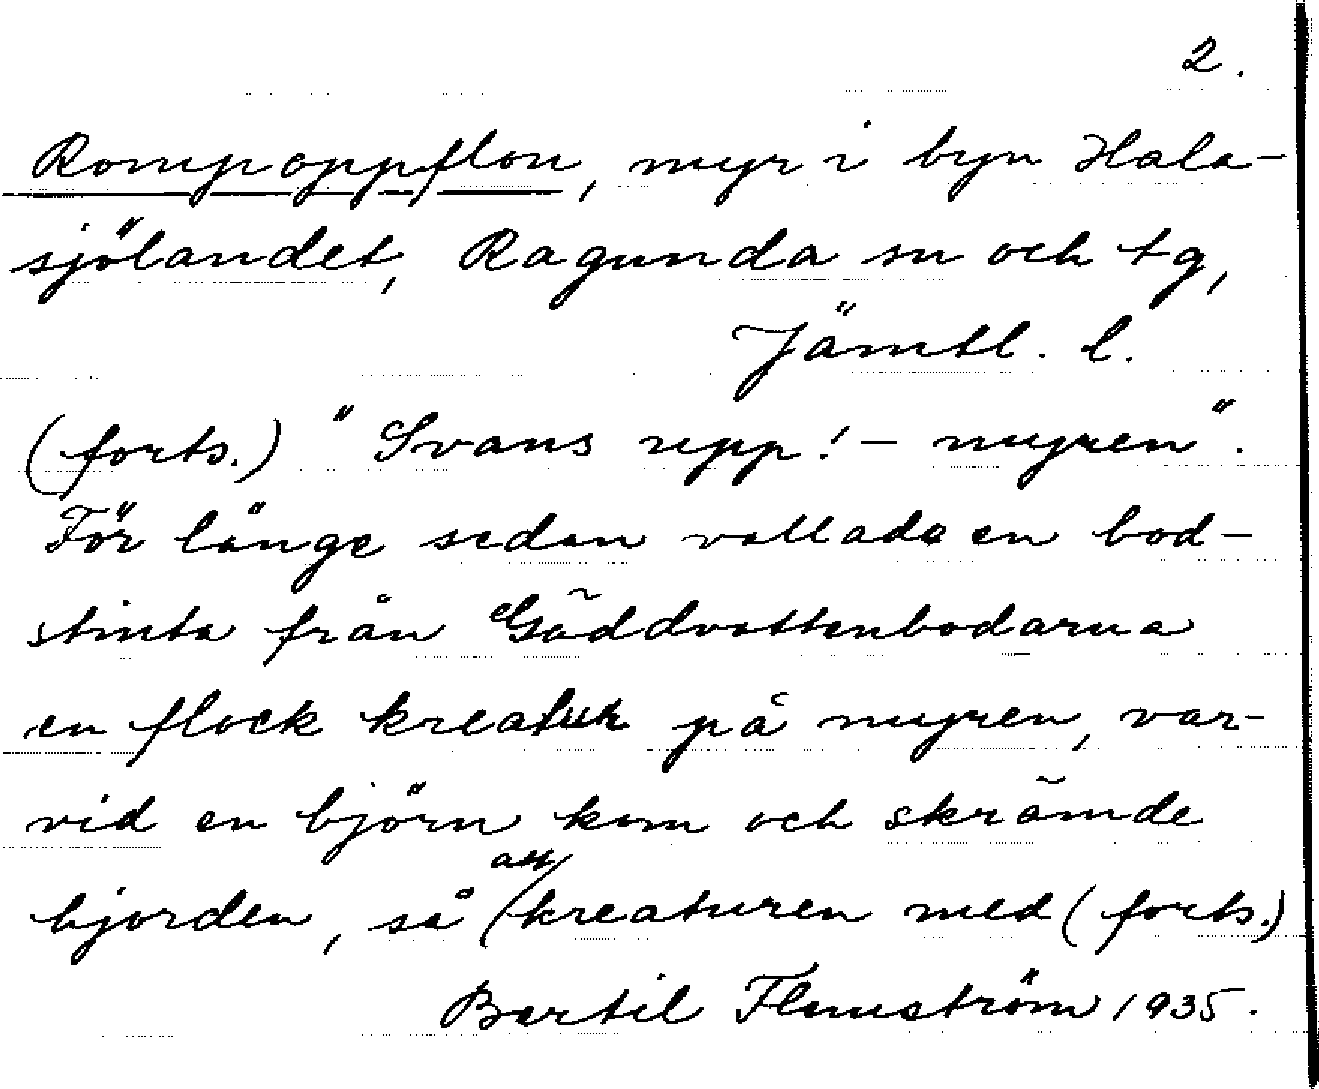 2.
Rompoppflon, myr i byn Hala-
sjölandet, Ragunda sn och tg,
Jämtl. l.
(forts.) "Svans upp! - myren".
För länge sedan vallade en bod-
stinta från Gäddvattenbodarna
en flock kreatur på myren, var-
vid en björn kom och skrämde
hjorden, så att kreaturen med (forts.)
Bertil Flemström 1935.